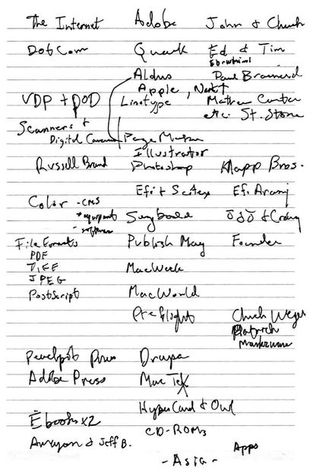 The Internet
Adobe
John & Chuck
DotCom
Quark
Ed & Tim
Ebrahimi
Aldus
Paul Brainerd
Apple, Next
VDP + DOD
Linotype
Mathew Carter
etc. St. Stone
Scanners &
Digital Cameras
Page Maker
Illustrator
Russell Brand
Photoshop
Knapp Bros.
Efi + Scitex
Efi Arazi
Color - CMS
- equipment
- software
Seybold
& Craig
File Formats
Publish Mag
Founder
PDF
TIFF
MacWeek
JPEG
PostScript
MacWorld
Preflight
Chuck Weger
Patrick
Peachpit Press
Drupa
Adobe Press
Mac TeX
HyperCard & Owl
Ebooks x2
CD-ROMs
Amazon & Jeff B.
Apps
- Asia -